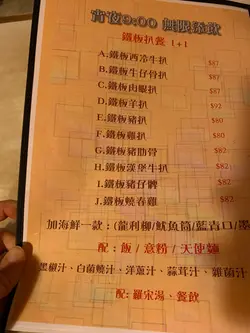 宵夜9:00 無限添飲
鐵板扒餐 1+1
A.鐵板西冷牛扒 $87
B.鐵板牛仔骨扒 $87
C.鐵板肉眼扒 $87
D.鐵板羊扒 $92
E.鐵板豬扒 $82
F.鐵板雞扒 $82
G.鐵板豬肋骨 $82
H.鐵板漢堡牛扒 $82
I.鐵板豬仔髀 $82
J.鐵板燒春雞 $82
加海鮮一款:(龍利柳/魷魚筒/藍青口/墨
配:飯/意粉/天使麵
黑椒汁、白菌燒汁、洋蔥汁、蒜茸汁、雜菌汁
配:羅宋湯、餐飲